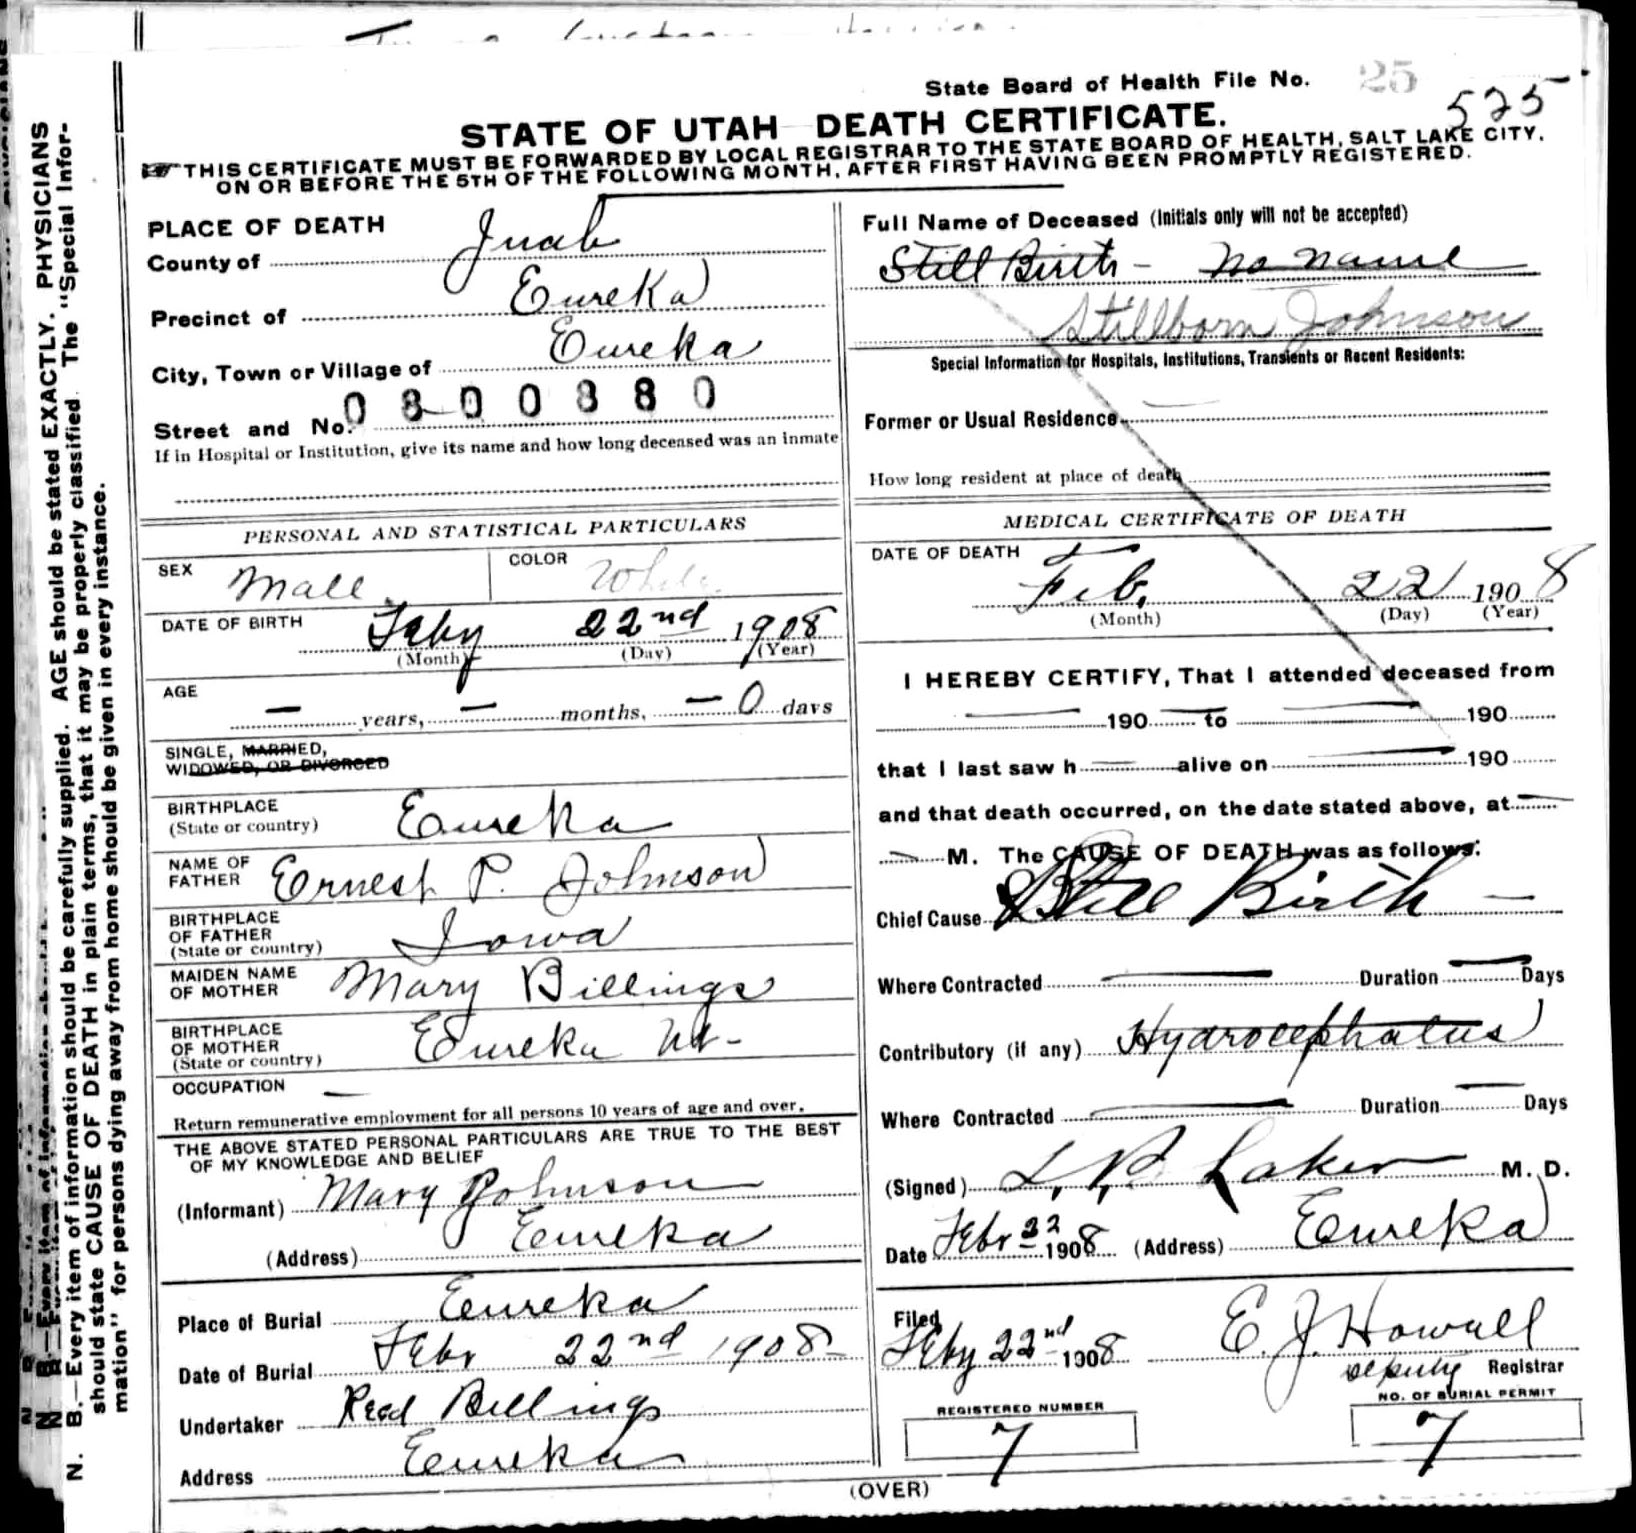 State Board of Health File No. 25
525
STATE OF UTAH DEATH CERTIFICATE.
THIS CERTIFICATE MUST BE FORWARDED BY LOCAL REGISTRAR TO THE STATE BOARD OF HEALTH, SALT LAKE CITY,
ON OR BEFORE THE 5TH OF THE FOLLOWING MONTH, AFTER FIRST HAVING BEEN PROMPTLY REGISTERED.
N. B.—Every item of information should be carefully supplied. AGE should be stated EXACTLY. PHYSICIANS
should state CAUSE OF DEATH in plain terms, that it may be properly classified. The "Special Infor-
mation" for persons dying away from home should be given in every instance.
PLACE OF DEATH
County of Juab
Precinct of Eureka
City, Town or Village of Eureka
Street and No. 0300380
If in Hospital or Institution, give its name and how long deceased was an inmate
PERSONAL AND STATISTICAL PARTICULARS
SEX Male COLOR White
DATE OF BIRTH Feby 22nd 1908
(Month) (Day) (Year)
AGE — years, — months, — 0 days
SINGLE, MARRIED,
WIDOWED, OR DIVORCED
BIRTHPLACE
(State or country) Eureka
NAME OF
FATHER Ernest P. Johnson
BIRTHPLACE
OF FATHER
(State or country) Iowa
MAIDEN NAME
OF MOTHER Mary Billings
BIRTHPLACE
OF MOTHER
(State or country) Eureka Ut-
OCCUPATION —
Return remunerative employment for all persons 10 years of age and over.
THE ABOVE STATED PERSONAL PARTICULARS ARE TRUE TO THE BEST
OF MY KNOWLEDGE AND BELIEF
(Informant) Mary Johnson
(Address) Eureka
Place of Burial Eureka
Date of Burial Febr 22nd 1908
Undertaker Reed Billings
Address Eureka
Full Name of Deceased (Initials only will not be accepted)
Still Birth - No name
Stillborn Johnson
Special Information for Hospitals, Institutions, Transients or Recent Residents:
Former or Usual Residence
How long resident at place of death
MEDICAL CERTIFICATE OF DEATH
DATE OF DEATH
Feb. 22 1908
(Month) (Day) (Year)
I HEREBY CERTIFY, That I attended deceased from
— 190 to — 190
that I last saw h — alive on — 190
and that death occurred, on the date stated above, at —
— M. The CAUSE OF DEATH was as follows:
Chief Cause Still Birth —
Where Contracted — Duration — Days
Contributory (if any) Hydrocephalus
Where Contracted — Duration — Days
(Signed) Laker M. D.
Date Febr 22 1908 (Address) Eureka
Filed
Feby 22nd 1908 E. J. Howell
Deputy Registrar
REGISTERED NUMBER
7
NO. OF BURIAL PERMIT
7
(OVER)